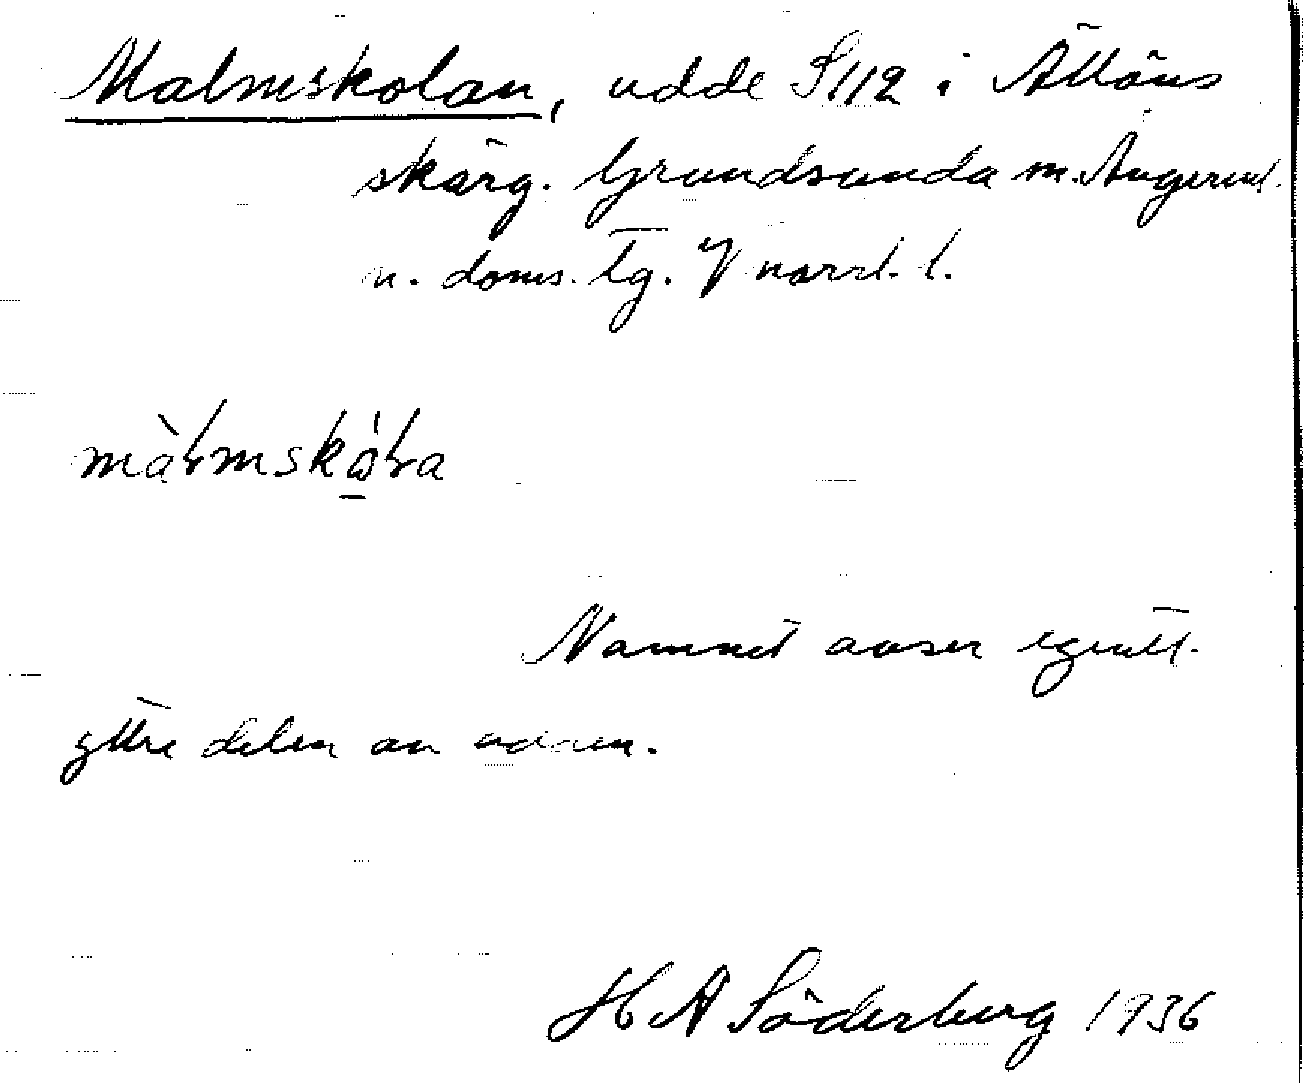 Malmskolan, udde S 112 i Ällöns
skärg. Grundsunda sn. Ångerml.
n. doms. tg. Y norrl. l.
màɫmskò̱ɫa
Namnet avser egentl.
yttre delen av udden.
H A Söderberg 1936